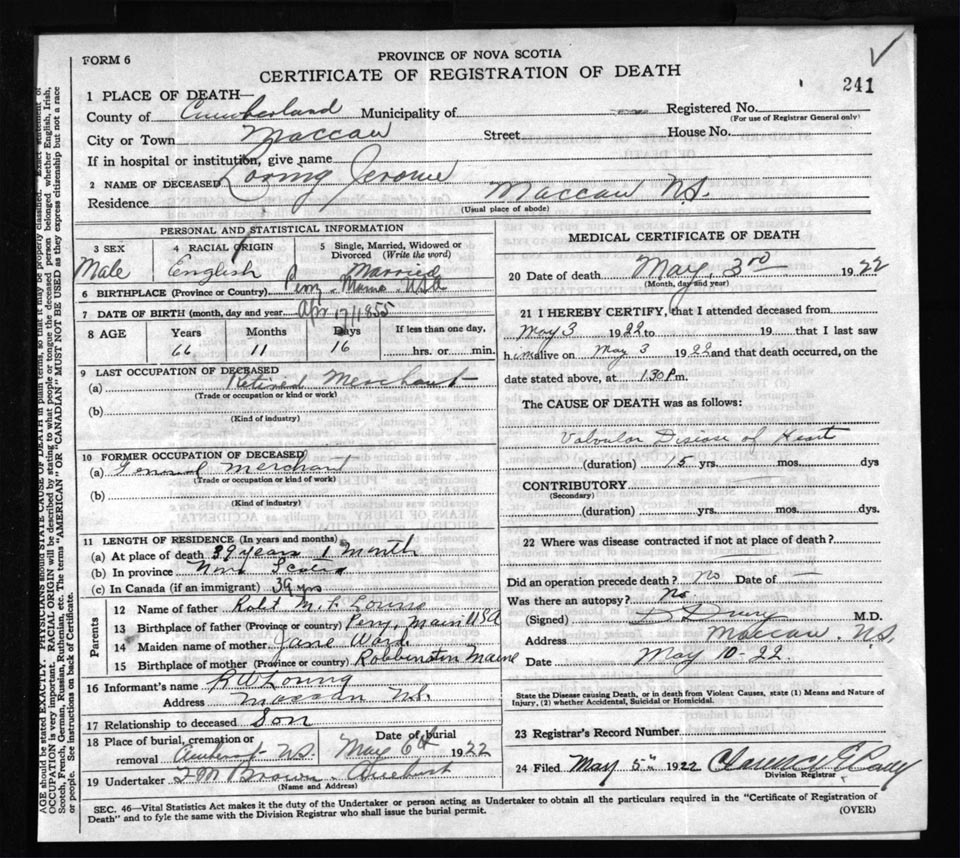 FORM 6
PROVINCE OF NOVA SCOTIA
CERTIFICATE OF REGISTRATION OF DEATH
241
1 PLACE OF DEATH—
County of Cumberland Municipality of Registered No.
(For use of Registrar General only)
City or Town Maccan Street House No.
If in hospital or institution, give name
2 NAME OF DECEASED Loring Jerome
Residence Maccan N.S.
(Usual place of abode)
PERSONAL AND STATISTICAL INFORMATION
3 SEX 4 RACIAL ORIGIN 5 Single, Married, Widowed or Divorced (Write the word)
Male English Married
6 BIRTHPLACE (Province or Country) Perry Maine USA
7 DATE OF BIRTH (month, day and year) Apr 17/1855
8 AGE Years Months Days If less than one day,
66 11 16 hrs. or min.
9 LAST OCCUPATION OF DECEASED
(a) Retired Merchant
(Trade or occupation or kind or work)
(b)
(Kind of industry)
10 FORMER OCCUPATION OF DECEASED
(a) General Merchant
(Trade or occupation or kind of work)
(b)
(Kind of industry)
11 LENGTH OF RESIDENCE (In years and months)
(a) At place of death 39 years 1 month
(b) In province Nova Scotia
(c) In Canada (if an immigrant) 39 yrs
Parents
12 Name of father Robt M. F. Loring
13 Birthplace of father (Province or country) Perry, Main USA
14 Maiden name of mother Jane Ward
15 Birthplace of mother (Province or country) Robbinston Maine
16 Informant's name R W Loring
Address Maccan N.S.
17 Relationship to deceased Son
18 Place of burial, cremation or removal Amherst N.S. Date of burial May 6th 1922
19 Undertaker Brown Amherst
(Name and Address)
MEDICAL CERTIFICATE OF DEATH
20 Date of death May, 3rd 1922
(Month, day and year)
21 I HEREBY CERTIFY, that I attended deceased from
May 3 1922 to 19 that I last saw
him alive on May 3 1922 and that death occurred, on the
date stated above, at 1.30 P.m.
The CAUSE OF DEATH was as follows:
Valvular Disease of Heart
(duration) 15 yrs. mos. dys
CONTRIBUTORY
(Secondary)
(duration) yrs. mos. dys.
22 Where was disease contracted if not at place of death?
Did an operation precede death? No Date of —
Was there an autopsy? No
(Signed) D Drury M.D.
Address Maccan N.S.
Date May 10-22.
State the Disease causing Death, or in death from Violent Causes, state (1) Means and Nature of Injury, (2) whether Accidental, Suicidal or Homicidal.
23 Registrar's Record Number
24 Filed May 5th 1922
Division Registrar
SEC. 46—Vital Statistics Act makes it the duty of the Undertaker or person acting as Undertaker to obtain all the particulars required in the "Certificate of Registration of
Death" and to fyle the same with the Division Registrar who shall issue the burial permit. (OVER)
AGE should be stated EXACTLY. PHYSICIANS should STATE CAUSE OF DEATH in plain terms, so that it may be properly classified. Exact statement of
OCCUPATION is very important. RACIAL ORIGIN will be described by stating to what people or tongue the deceased person belonged whether English, Irish,
Scotch, French, German, Russian, Ruthenian, etc. The terms "AMERICAN" OR "CANADIAN" MUST NOT BE USED as they express citizenship but not a race
or people. See instructions on back of Certificate.